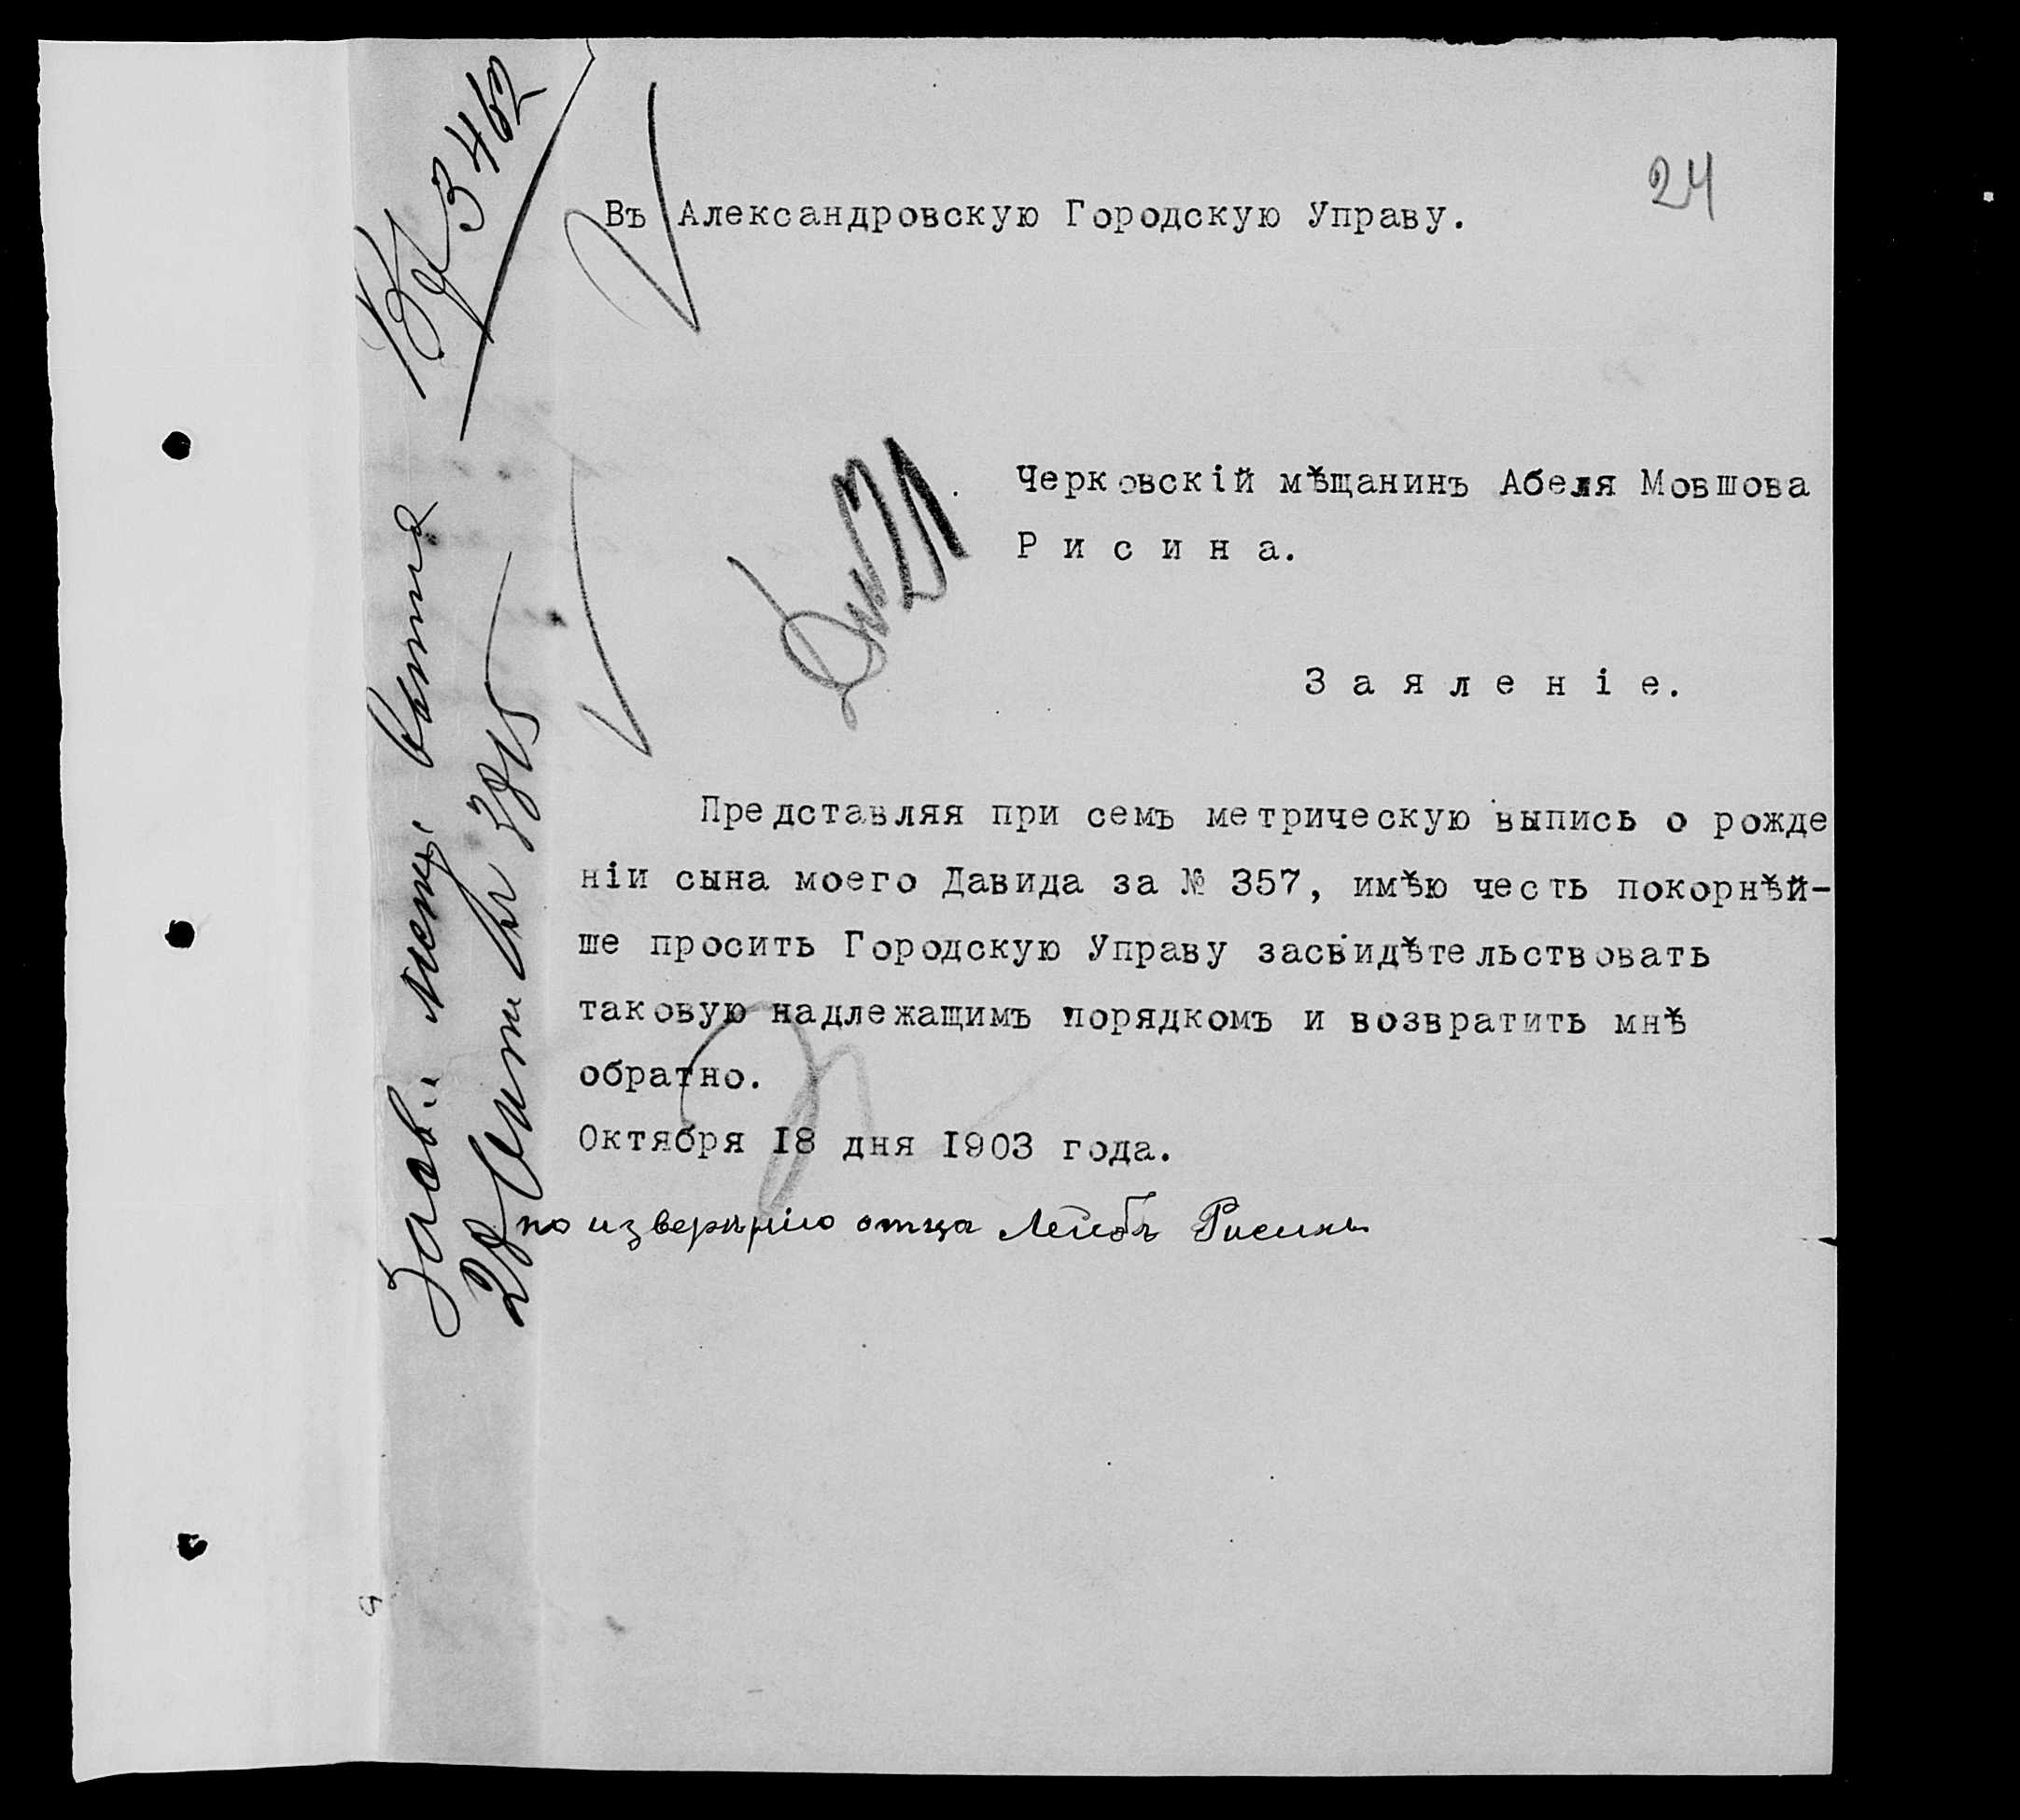 24
Въ Александровскую Городскую Управу.
Черковскій мѣщанинъ Абеля Мовшова
Р и с и н а.
З а я л е н і е.
Представляя при семъ метрическую выпись о рожде
ніи сына моего Давида за № 357, имѣю честь покорнѣй-
ше просить Городскую Управу засвидѣтельствовать
таковую надлежащимъ порядкомъ и возвратить мнѣ
обратно.
Октября 18 дня 1903 года.
по отца Лейбъ Рисинъ
3462